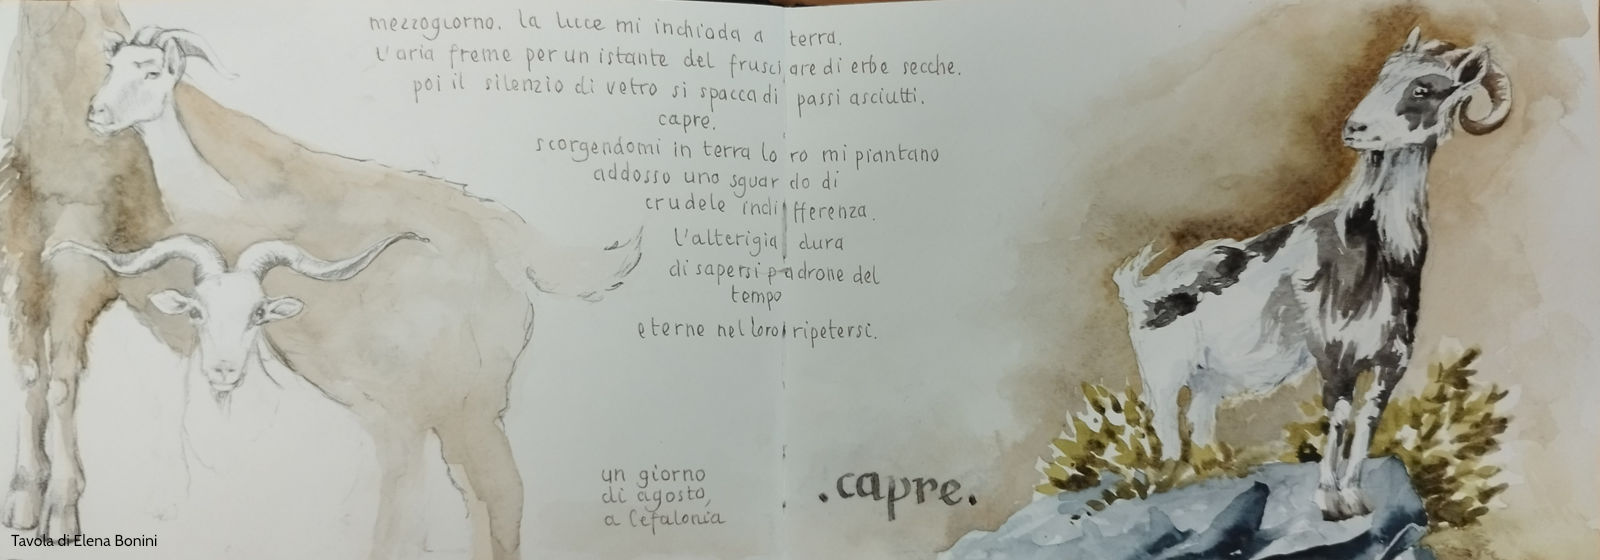 mezzogiorno. la luce mi inchioda a terra.
l'aria freme per un istante del frusciare di erbe secche.
poi il silenzio di vetro si spacca di passi asciutti.
capre.
scorgendomi in terra loro mi piantano
addosso uno sguardo di
crudele indifferenza.
l'alterigia dura
di sapersi padrone del
tempo
eterne nel loro ripetersi.
un giorno
di agosto,
a Cefalonia
.capre.
Tavola di Elena Bonini